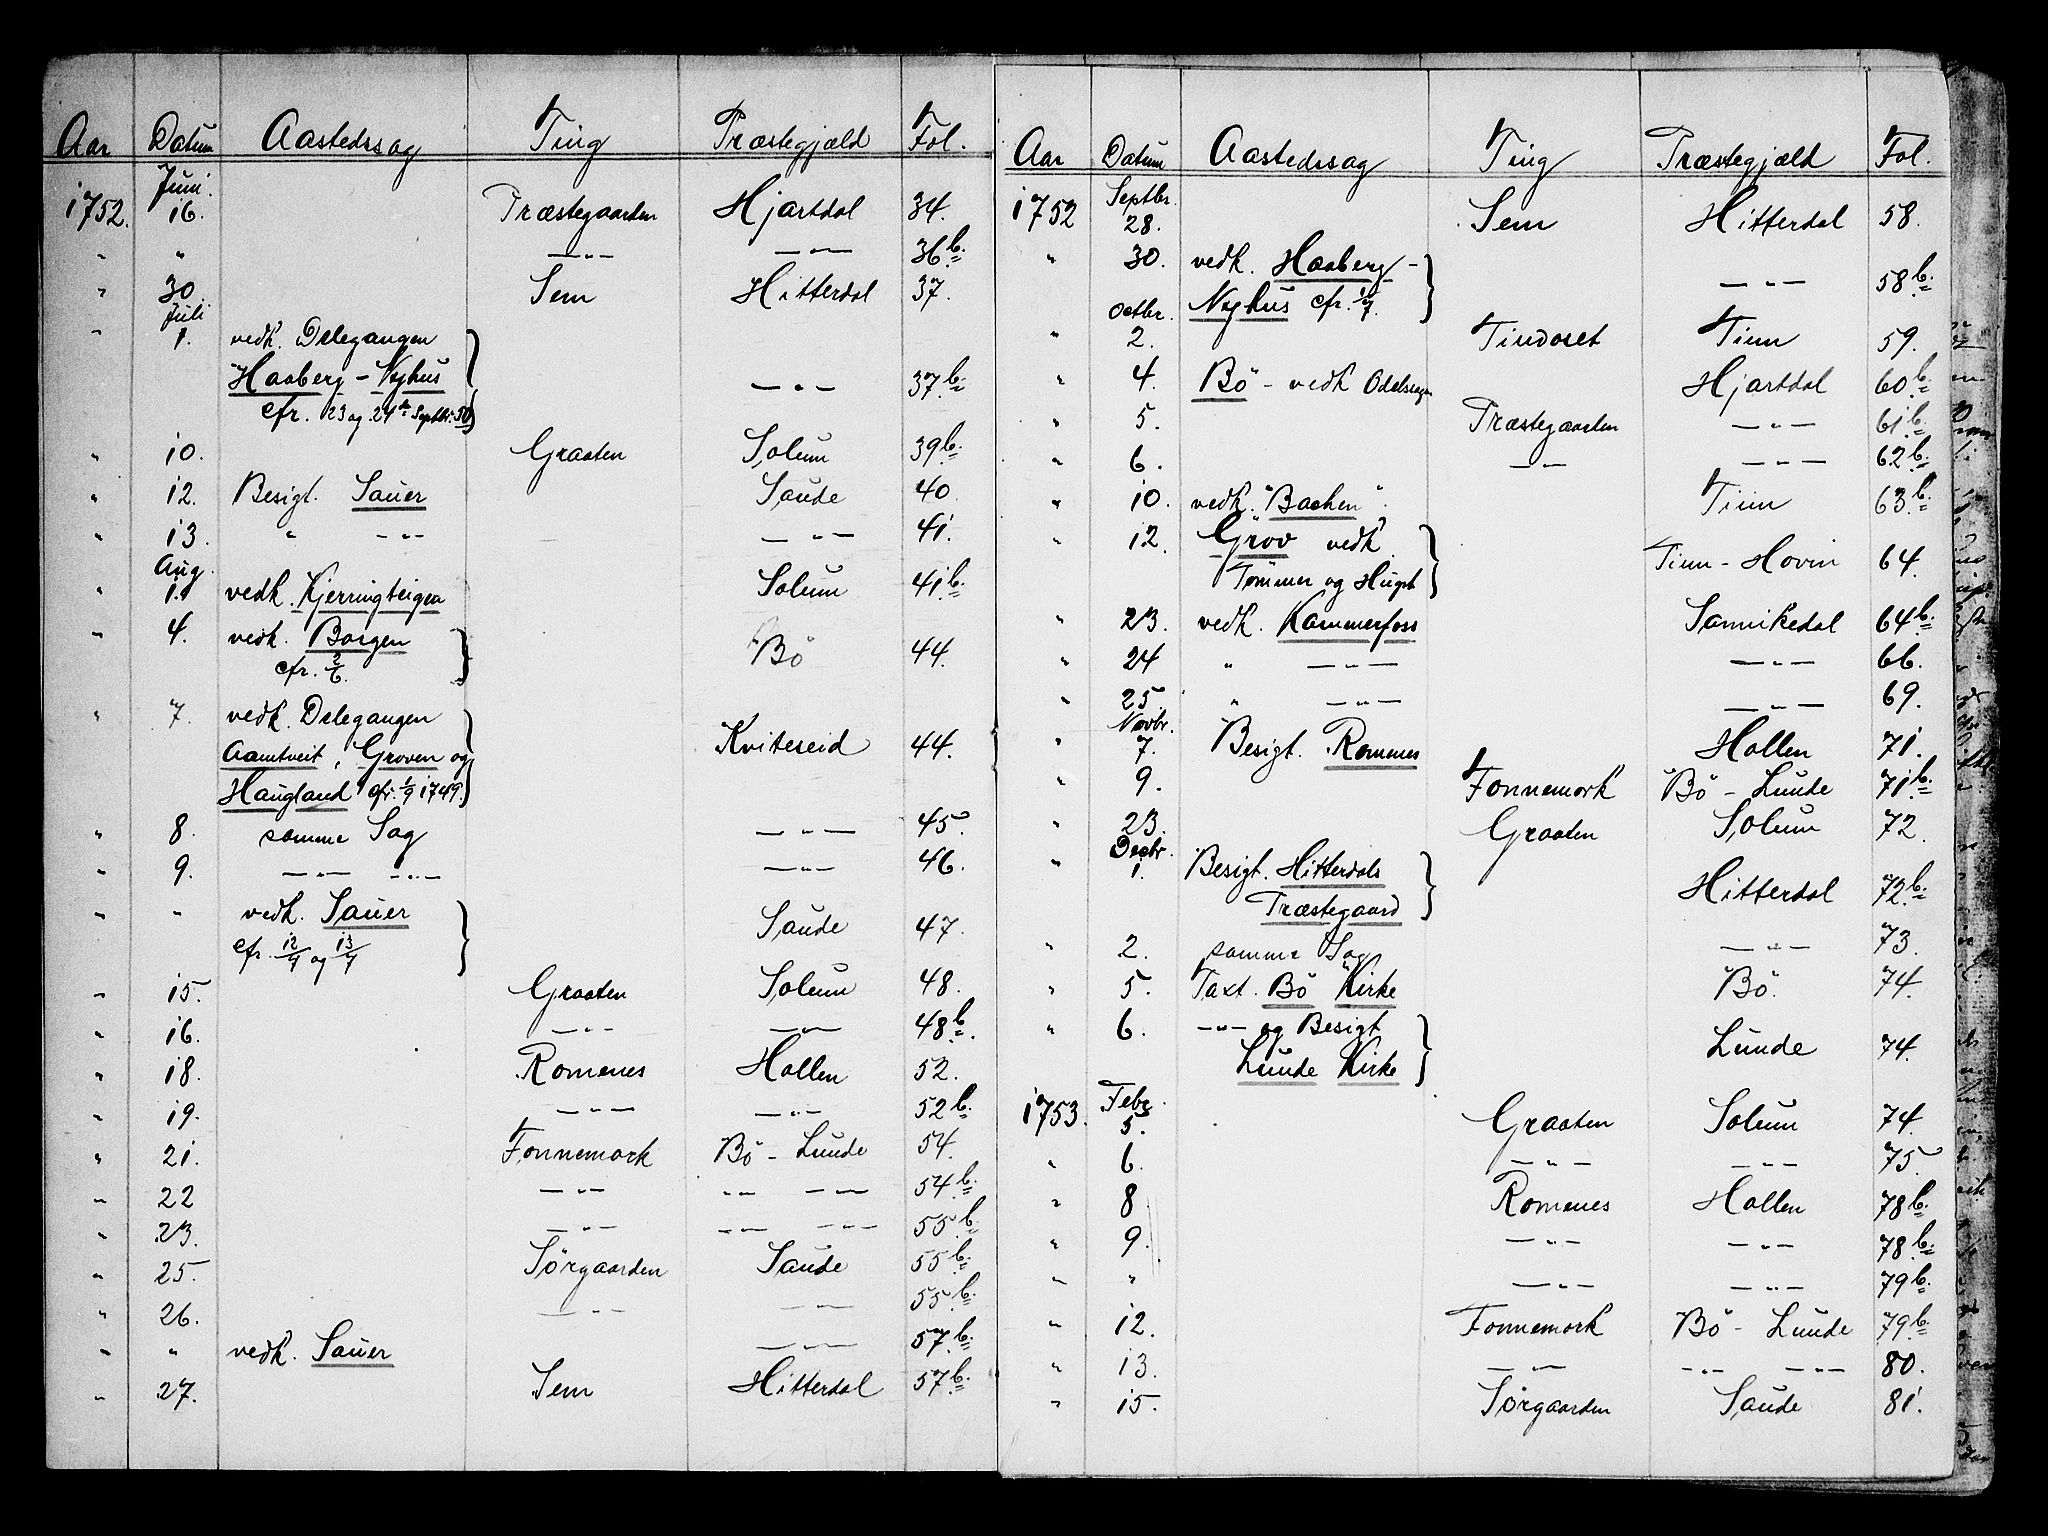 Aar Datum Aastedssag Ting Præstegjæld Fol.
1752. Juni 16. Præstegaarden Hjartdal 34.
" " —"— —"— 36b.
" 30 Sem Hitterdal 37.
" Juli 1. vedk. Delegangen
Haaberg - Nyhus —"— 37b.
cfr. 23 og 24de Septbr. 50
" 10. Graaten Solum 39b.
" 12. Besigt. Sauer Saude 40.
" 13. " —"— —"— 41.
" Aug. 1. vedk. Kjerringteigen Solum 41b.
" 4. vedk. Borgen Bö 44.
cfr. 2/6.
" 7. vedk. Delegangen
Aamtveit, Groven og Kviteseid 44.
Haugland cfr. 1/9 1749.
" 8. samme Sag —"— 45.
" 9. —"— —"— —"— 46.
" " vedk. Sauer Saude 47.
cfr. 12/7 og 13/7
" 15. Graaten Solum 48.
" 16. —"— —"— 48b.
" 18. Romenes Hollen 52.
" 19. —"— —"— 52b.
" 21. Fonnemork Bö - Lunde 54.
" 22 —"— —"— —"— 54b.
" 23. —"— —"— —"— 55b.
" 25. Sörgaarden Saude 55b.
" 26. —"— —"— 55b.
" " vedk. Sauer —"— 57b.
" 27. Sem Hitterdal 57b.
Aar Datum Aastedssag Ting Præstegjæld Fol.
1752 Septbr. 28. Sem Hitterdal 58.
" 30. vedk. Haaberg -
Nyhus cfr. 1/7. —"— 58b.
" Octbr. 2. Tindoset Tinn 59.
" 4. Bö - vedk Odelssagen Hjartdal 60b.
" 5. Præstegaarden —"— 61b.
" 6. —"— —"— 62b.
" 10. vedk. "Bachen". Tinn 63b.
" 12. Gröv vedk
Tömmer og Hugst Tinn - Hovin 64.
" 23. vedk. Kammerfoss Sannikedal 64b.
" 24 " —"— —"— 66.
" 25. " —"— —"— 69.
" Novbr. 7. Besigt. Romnes Hollen 71.
" 9. Fonnemork Bö - Lunde 71b.
" 23. Graaten Solum 72.
" Decbr. 1. Besigt. Hitterdals
Præstegaard Hitterdal 72b.
" 2. samme Sag —"— 73.
" 5. Taxt. Bö Kirke Bö. 74.
" 6. —"— og Besigt
Lunde Kirke Lunde 74.
1753. Febr. 5. Graaten Solum 74.
" 6. —"— —"— 75.
" 8 Romenes Hollen 78b.
" 9. —"— —"— 78b.
" " —"— —"— 79b.
" 12. Fonnemork Bö - Lunde 79b.
" 13. —"— —"— —"— 80.
" 15. Sörgaarden Saude 81.